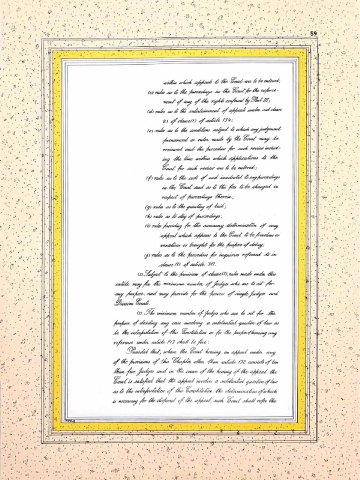 59
within which appeals to the Court are to be entered;
(c) rules as to the proceedings in the Court for the enforce-
ment of any of the rights conferred by Part III;
(d) rules as to the entertainment of appeals under sub-clause
(c) of clause (1) of article 134;
(e) rules as to the conditions subject to which any judgment
pronounced or order made by the Court may be
reviewed and the procedure for such review includ-
ing the time within which applications to the
Court for such review are to be entered;
(f) rules as to the costs of and incidental to any proceedings
in the Court and as to the fees to be charged in
respect of proceedings therein;
(g) rules as to the granting of bail;
(h) rules as to stay of proceedings;
(i) rules providing for the summary determination of any
appeal which appears to the Court to be frivolous or
vexatious or brought for the purpose of delay;
(j) rules as to the procedure for inquiries referred to in
clause (1) of article 317.
(2) Subject to the provisions of clause (3), rules made under this
article may fix the minimum number of Judges who are to sit for
any purpose, and may provide for the powers of single Judges and
Division Courts.
(3) The minimum number of Judges who are to sit for the
purpose of deciding any case involving a substantial question of law as
to the interpretation of this Constitution or for the purpose of hearing any
reference under article 143 shall be five:
Provided that, where the Court hearing an appeal under any
of the provisions of this Chapter other than article 132 consists of less
than five Judges and in the course of the hearing of the appeal the
Court is satisfied that the appeal involves a substantial question of law
as to the interpretation of this Constitution the determination of which
is necessary for the disposal of the appeal, such Court shall refer the